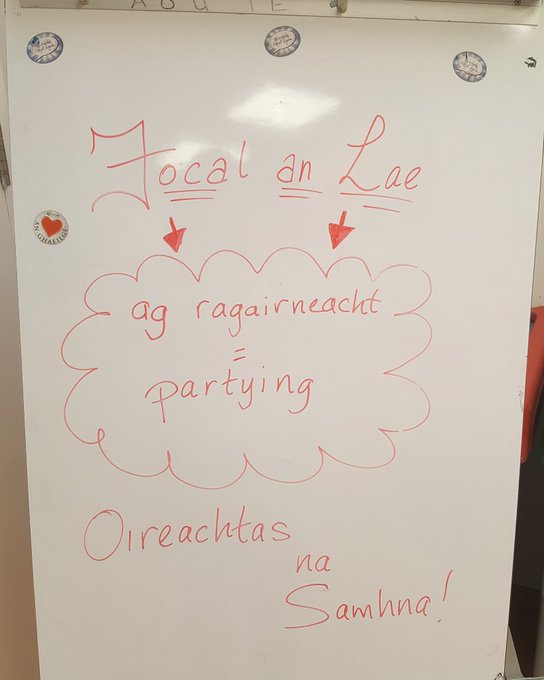 Focal an Lae
ag ragairneacht
=
partying
Oireachtas
na
Samhna!
AN GHAEILGE